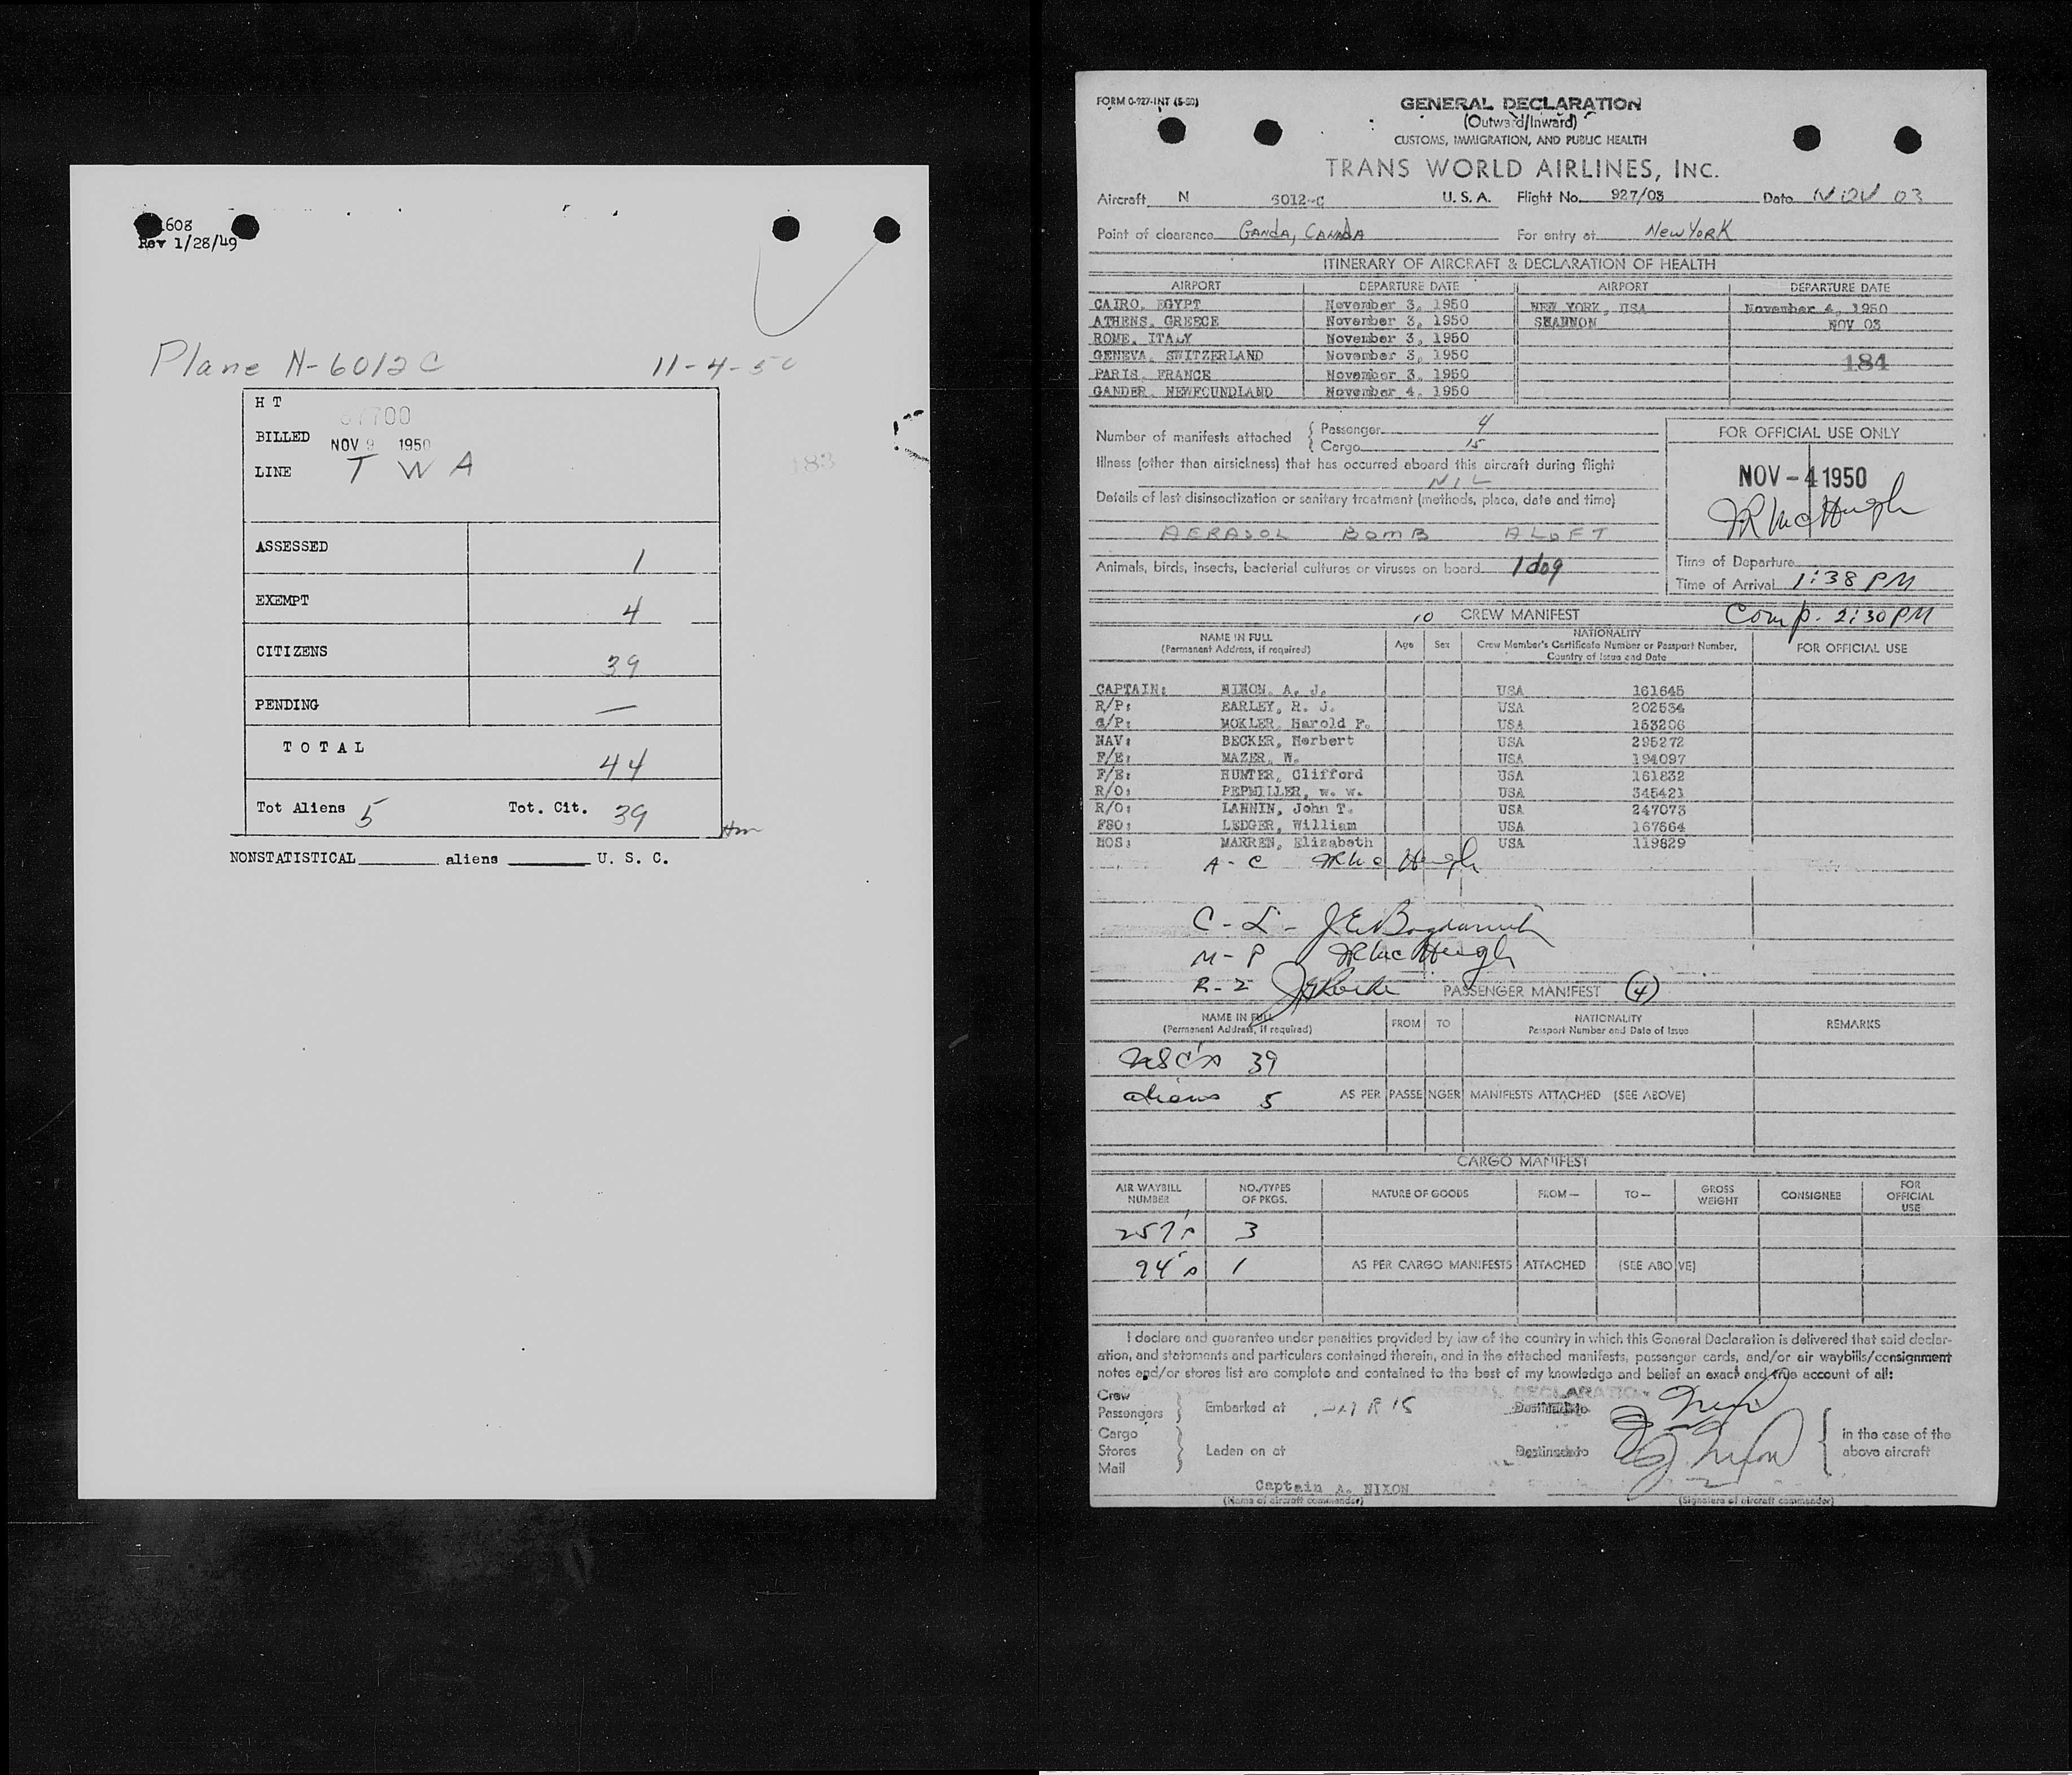 1608
Rev 1/28/49
Plane N-6012C 11-4-50
H T
67700
BILLED NOV 9 1950
LINE T W A
183
ASSESSED 1
EXEMPT 4
CITIZENS 39
PENDING —
T O T A L 44
Tot Aliens 5 Tot. Cit. 39
NONSTATISTICAL aliens U. S. C.
FORM 0-927-INT (5-50)
GENERAL DECLARATION
(Outward/Inward)
CUSTOMS, IMMIGRATION, AND PUBLIC HEALTH
TRANS WORLD AIRLINES, INC.
Aircraft N 6012-C U. S. A. Flight No. 927/03 Date NOV 03
Point of clearance GANDA, CANADA For entry at NEW YORK
ITINERARY OF AIRCRAFT & DECLARATION OF HEALTH
AIRPORT DEPARTURE DATE AIRPORT DEPARTURE DATE
CAIRO, EGYPT November 3, 1950 NEW YORK, USA November 4, 1950
ATHENS, GREECE November 3, 1950 SHANNON NOV 03
ROME, ITALY November 3, 1950
GENEVA, SWITZERLAND November 3, 1950 184
PARIS, FRANCE November 3, 1950
GANDER, NEWFOUNDLAND November 4, 1950
Number of manifests attached { Passenger 4
{ Cargo 15
FOR OFFICIAL USE ONLY
Illness (other than airsickness) that has occurred aboard this aircraft during flight
NIL
NOV - 4 1950
JR McHugh
Details of last disinsectization or sanitary treatment (methods, place, date and time)
AERASOL BOMB ALOFT
Animals, birds, insects, bacterial cultures or viruses on board 1 dog
Time of Departure
Time of Arrival 1:38 PM
10 CREW MANIFEST Comp. 2:30 PM
NAME IN FULL (Permanent Address, if required) Age Sex NATIONALITY Crew Member's Certificate Number or Passport Number, Country of Issue and Date FOR OFFICIAL USE
CAPTAIN: NIXON, A. J. USA 161645
R/P: EARLEY, R. J. USA 202534
C/P: MOKLER, Harold F. USA 153206
NAV: BECKER, Herbert USA 295272
F/E: MAZER, W. USA 194097
F/E: HUNTER, Clifford USA 161832
R/O: PEPMILLER, w. w. USA 345421
R/O: LANNIN, John T. USA 247073
FSO: LEDGER, William USA 167664
HOS: MARREN, Elizabeth USA 119829
A - C JR McHugh
C - L -
M - P JR McHugh
R - Z
PASSENGER MANIFEST (4)
NAME IN FULL (Permanent Address, if required) FROM TO NATIONALITY Passport Number and Date of Issue REMARKS
USC's 39
aliens 5 AS PER PASSENGER MANIFESTS ATTACHED (SEE ABOVE)
CARGO MANIFEST
AIR WAYBILL NUMBER NO./TYPES OF PKGS. NATURE OF GOODS FROM— TO— GROSS WEIGHT CONSIGNEE FOR OFFICIAL USE
257's 3
94's 1 AS PER CARGO MANIFESTS ATTACHED (SEE ABOVE)
I declare and guarantee under penalties provided by law of the country in which this General Declaration is delivered that said declar-
ation, and statements and particulars contained therein, and in the attached manifests, passenger cards, and/or air waybills/consignment
notes and/or stores list are complete and contained to the best of my knowledge and belief an exact and true account of all:
GENERAL DECLARATION
Crew
Passengers } Embarked at Destined to
Cargo
Stores } Laden on at Destined to
Mail
in the case of the
above aircraft
A J Nixon
Captain A. NIXON
(Name of aircraft commander) (Signature of aircraft commander)